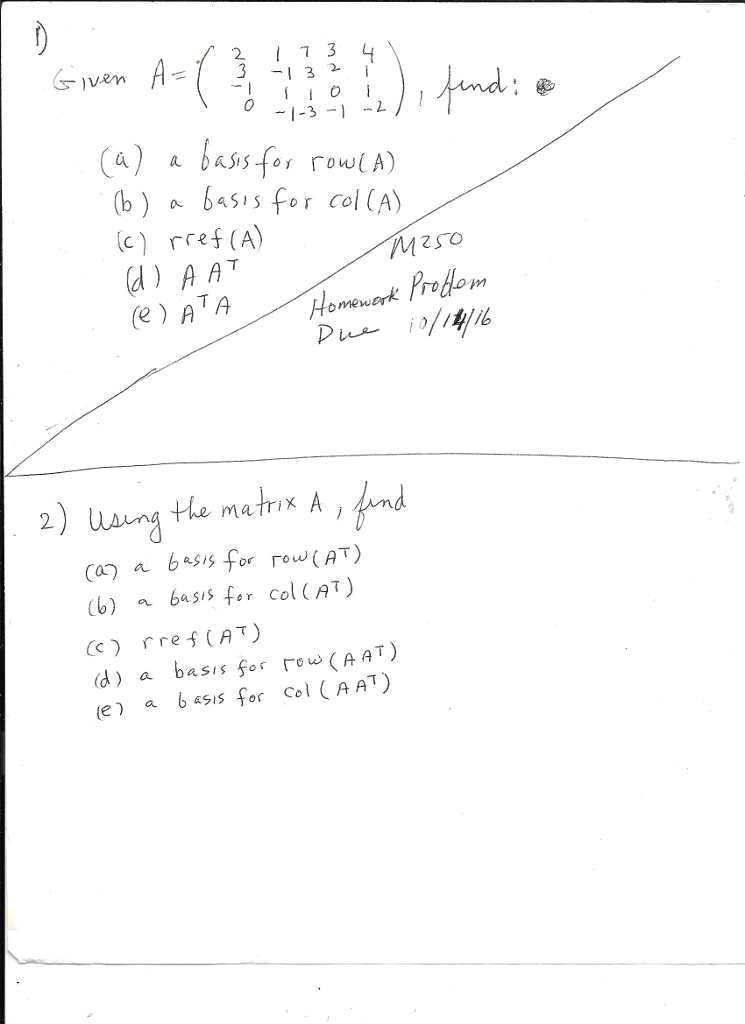 1)
Given A = ( 2 1 7 3 4
3 -1 3 2 1
-1 1 1 0 1
0 -1 -3 -1 -2 ), find:
(a) a basis for row(A)
(b) a basis for col(A)
(c) rref(A)
(d) A Aᵀ
(e) Aᵀ A
M250
Homework Problem
Due 10/14/16
2) Using the matrix A, find
(a) a basis for row(Aᵀ)
(b) a basis for col(Aᵀ)
(c) rref(Aᵀ)
(d) a basis for row(A Aᵀ)
(e) a basis for col(A Aᵀ)